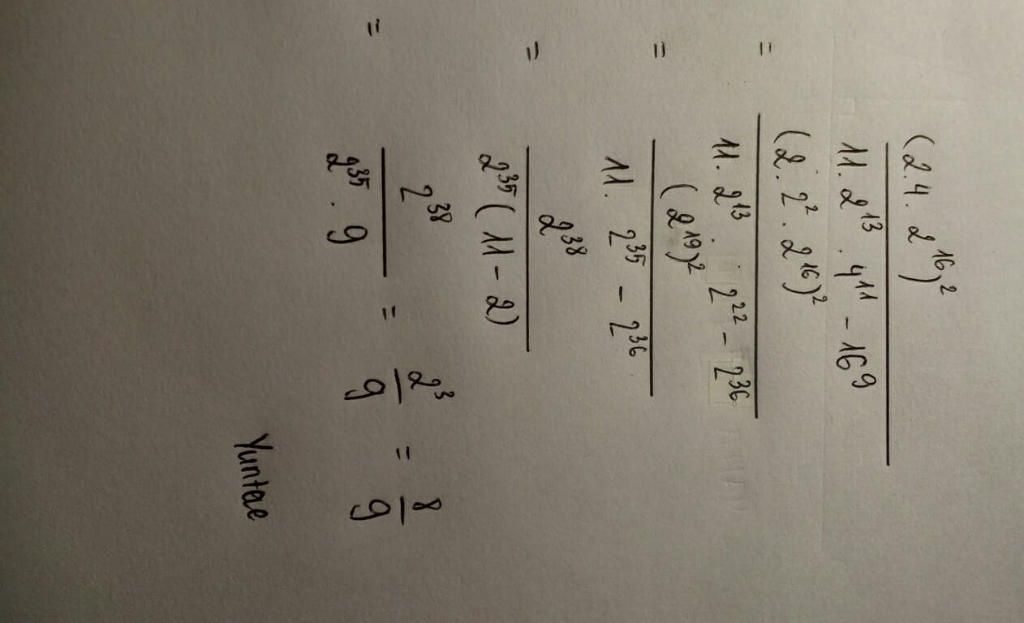 (2.4. 2^16)^2
11. 2^13 . 4^11 - 16^9
= (2. 2^2 . 2^16)^2
11. 2^13 . 2^22 - 2^36
= (2^19)^2
11. 2^35 - 2^36
= 2^38
2^35 (11 - 2)
= 2^38 = 2^3 = 8
2^35 . 9 9 9
Yuntae